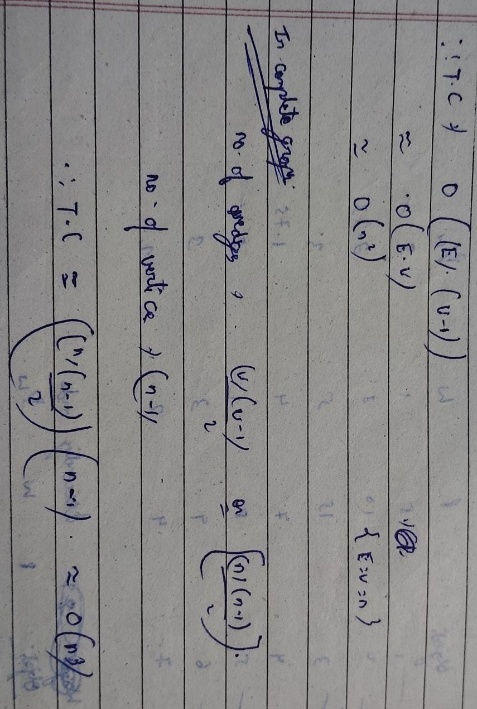 ∴ T.C → O ((E). (V-1))
≈ O(E.V)
≈ O(n²) {E=V=n}
In complete graph
no. of edges → (V)(V-1)/2 or ((n)(n-1)/2).
no. of vertice → (n-1)
∴ T.C ≈ ((n)(n-1)/2) (n-1). ≈ O(n³)